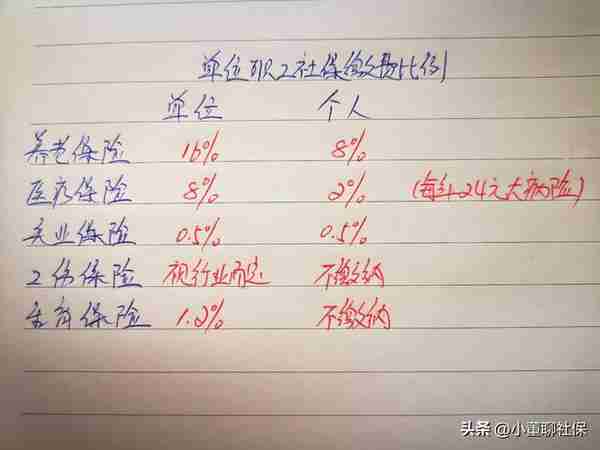 单位职工社保缴费比例
单位 个人
养老保险 16% 8%
医疗保险 8% 2% (每年24元大病险)
失业保险 0.5% 0.5%
工伤保险 视行业而定 不缴纳
生育保险 1.2% 不缴纳
头条 @小董聊社保